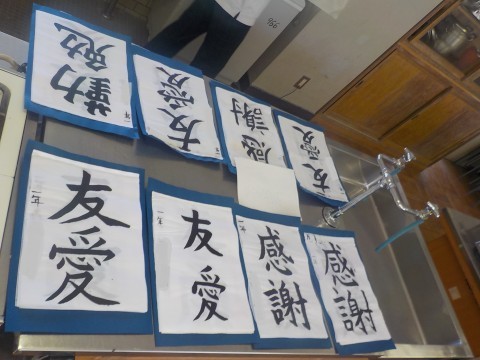 勤勉
友愛
感謝
友愛
一年
友愛
一年
友愛
感謝
感謝